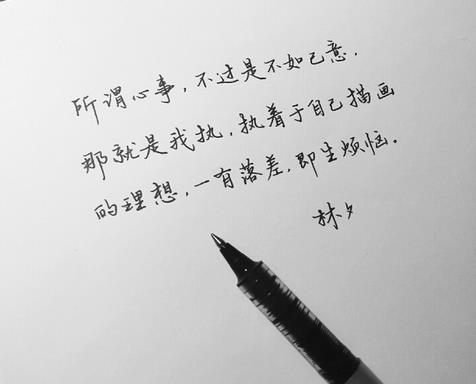 所谓心事，不过是不如己意，
那就是我执，执着于自己描画
的理想，一有落差，即生烦恼。
林夕